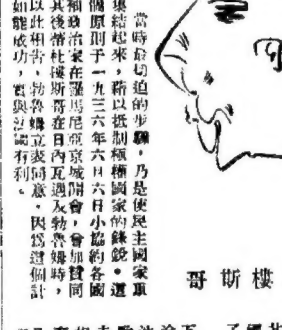 當時最切迫的步驟，乃是使民主國家重
集結起來，藉以抵制極權國家的鋒銳。這
個原則于一九三六年六月六日小協約各國
和政治家在羅馬尼亞京城開會，曾加贊同
其後蒂杜樓斯哥在日內瓦遇及勃魯姆時，
以此相告，勃魯姆立表同意。因爲這個計
如能成功，實與法國有利。
樓斯哥